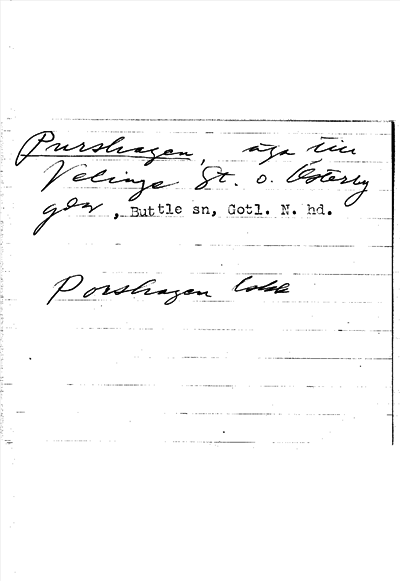 Purshagen, äga till
Velinge St. o. Österby
gdr, Buttle sn, Gotl. N. hd.
Porshagen